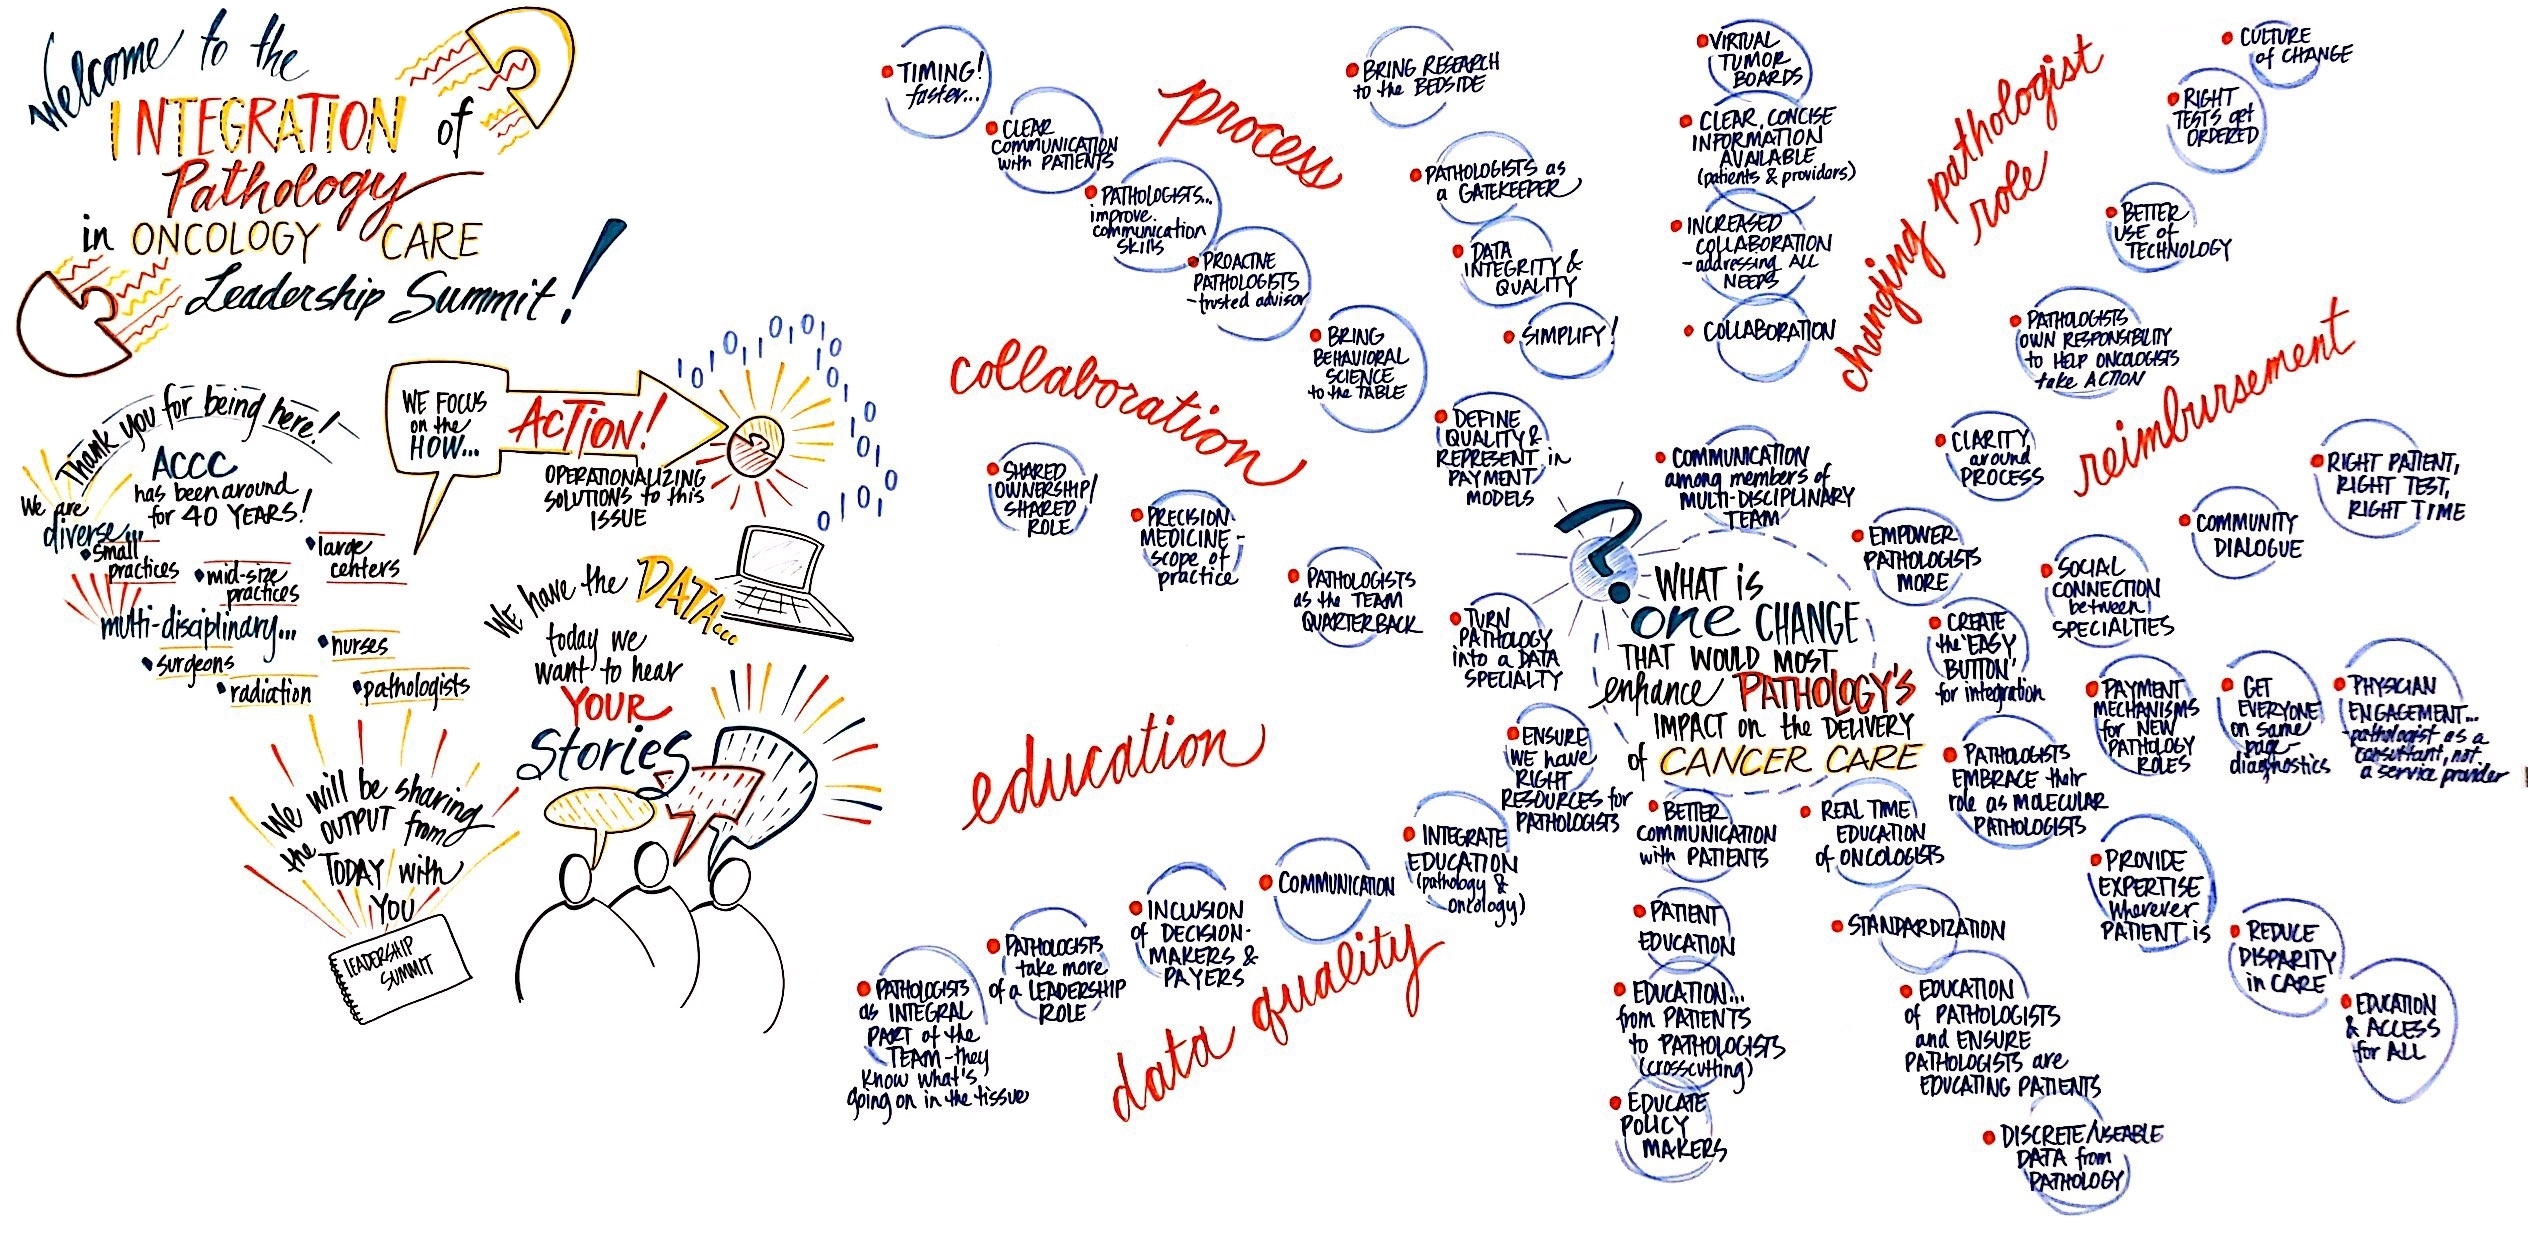 Welcome to the
INTEGRATION of
Pathology
in ONCOLOGY CARE
Leadership Summit!
Thank you for being here!
ACCC
has been around
for 40 YEARS!
We are
diverse...
small
practices
mid-size
practices
large
centers
multi-disciplinary...
surgeons
nurses
radiation
pathologists
WE FOCUS
on the
HOW...
ACTION!
OPERATIONALIZING
SOLUTIONS to this
ISSUE
1 0 1 0 1 1 0 1 0 1
WE have the DATA...
today we
want to hear
YOUR
Stories
We will be sharing
the OUTPUT from
TODAY with
YOU
LEADERSHIP
SUMMIT
process
collaboration
education
data quality
changing pathologist
role
reimbursement
WHAT IS
one CHANGE
THAT WOULD MOST
enhance PATHOLOGY'S
IMPACT on the DELIVERY
of CANCER CARE
?
TIMING!
faster...
CLEAR
COMMUNICATION
with PATIENTS
PATHOLOGISTS...
improve
communication
skills
PROACTIVE
PATHOLOGISTS
-trusted advisor
BRING
BEHAVIORAL
SCIENCE
to the TABLE
DEFINE
QUALITY &
REPRESENT in
PAYMENT
MODELS
BRING RESEARCH
to the BEDSIDE
PATHOLOGISTS as
a GATEKEEPER
DATA
INTEGRITY &
QUALITY
SIMPLIFY!
VIRTUAL
TUMOR
BOARDS
CLEAR, CONCISE
INFORMATION
AVAILABLE
(patients & providers)
INCREASED
COLLABORATION
-addressing ALL
NEEDS
COLLABORATION
COMMUNICATION
among members of
MULTI-DISCIPLINARY
TEAM
CULTURE
of CHANGE
RIGHT
TESTS get
ORDERED
BETTER
USE of
TECHNOLOGY
PATHOLOGISTS
OWN RESPONSIBILITY
to HELP ONCOLOGISTS
take ACTION
CLARITY
around
PROCESS
EMPOWER
PATHOLOGISTS
MORE
RIGHT PATIENT,
RIGHT TEST,
RIGHT TIME
COMMUNITY
DIALOGUE
SOCIAL
CONNECTION
between
SPECIALTIES
CREATE
the 'EASY
BUTTON'
for integration
SHARED
OWNERSHIP/
SHARED
ROLE
PRECISION
MEDICINE-
scope of
practice
PATHOLOGISTS
as the TEAM
QUARTERBACK
TURN
PATHOLOGY
into a DATA
SPECIALTY
PHYSICIAN
ENGAGEMENT...
-pathologist as a
consultant, not
a service provider
GET
EVERYONE
on same
page-
diagnostics
PAYMENT
MECHANISMS
for NEW
PATHOLOGY
ROLES
PATHOLOGISTS
EMBRACE their
role as MOLECULAR
PATHOLOGISTS
ENSURE
WE have
RIGHT
RESOURCES for
PATHOLOGISTS
INTEGRATE
EDUCATION
(pathology &
oncology)
COMMUNICATION
INCLUSION
of DECISION-
MAKERS &
PAYERS
PATHOLOGISTS
take more
of a LEADERSHIP
ROLE
PATHOLOGISTS
as INTEGRAL
PART of the
TEAM-they
know what's
going on in the tissue
BETTER
COMMUNICATION
with PATIENTS
PATIENT
EDUCATION
EDUCATION...
from PATIENTS
to PATHOLOGISTS
(crosscutting)
EDUCATE
POLICY
MAKERS
REAL TIME
EDUCATION
of ONCOLOGISTS
STANDARDIZATION
EDUCATION
of PATHOLOGISTS
and ENSURE
PATHOLOGISTS are
EDUCATING PATIENTS
DISCRETE/USEABLE
DATA from
PATHOLOGY
PROVIDE
EXPERTISE
Wherever
PATIENT is
REDUCE
DISPARITY
in CARE
EDUCATION
& ACCESS
for ALL